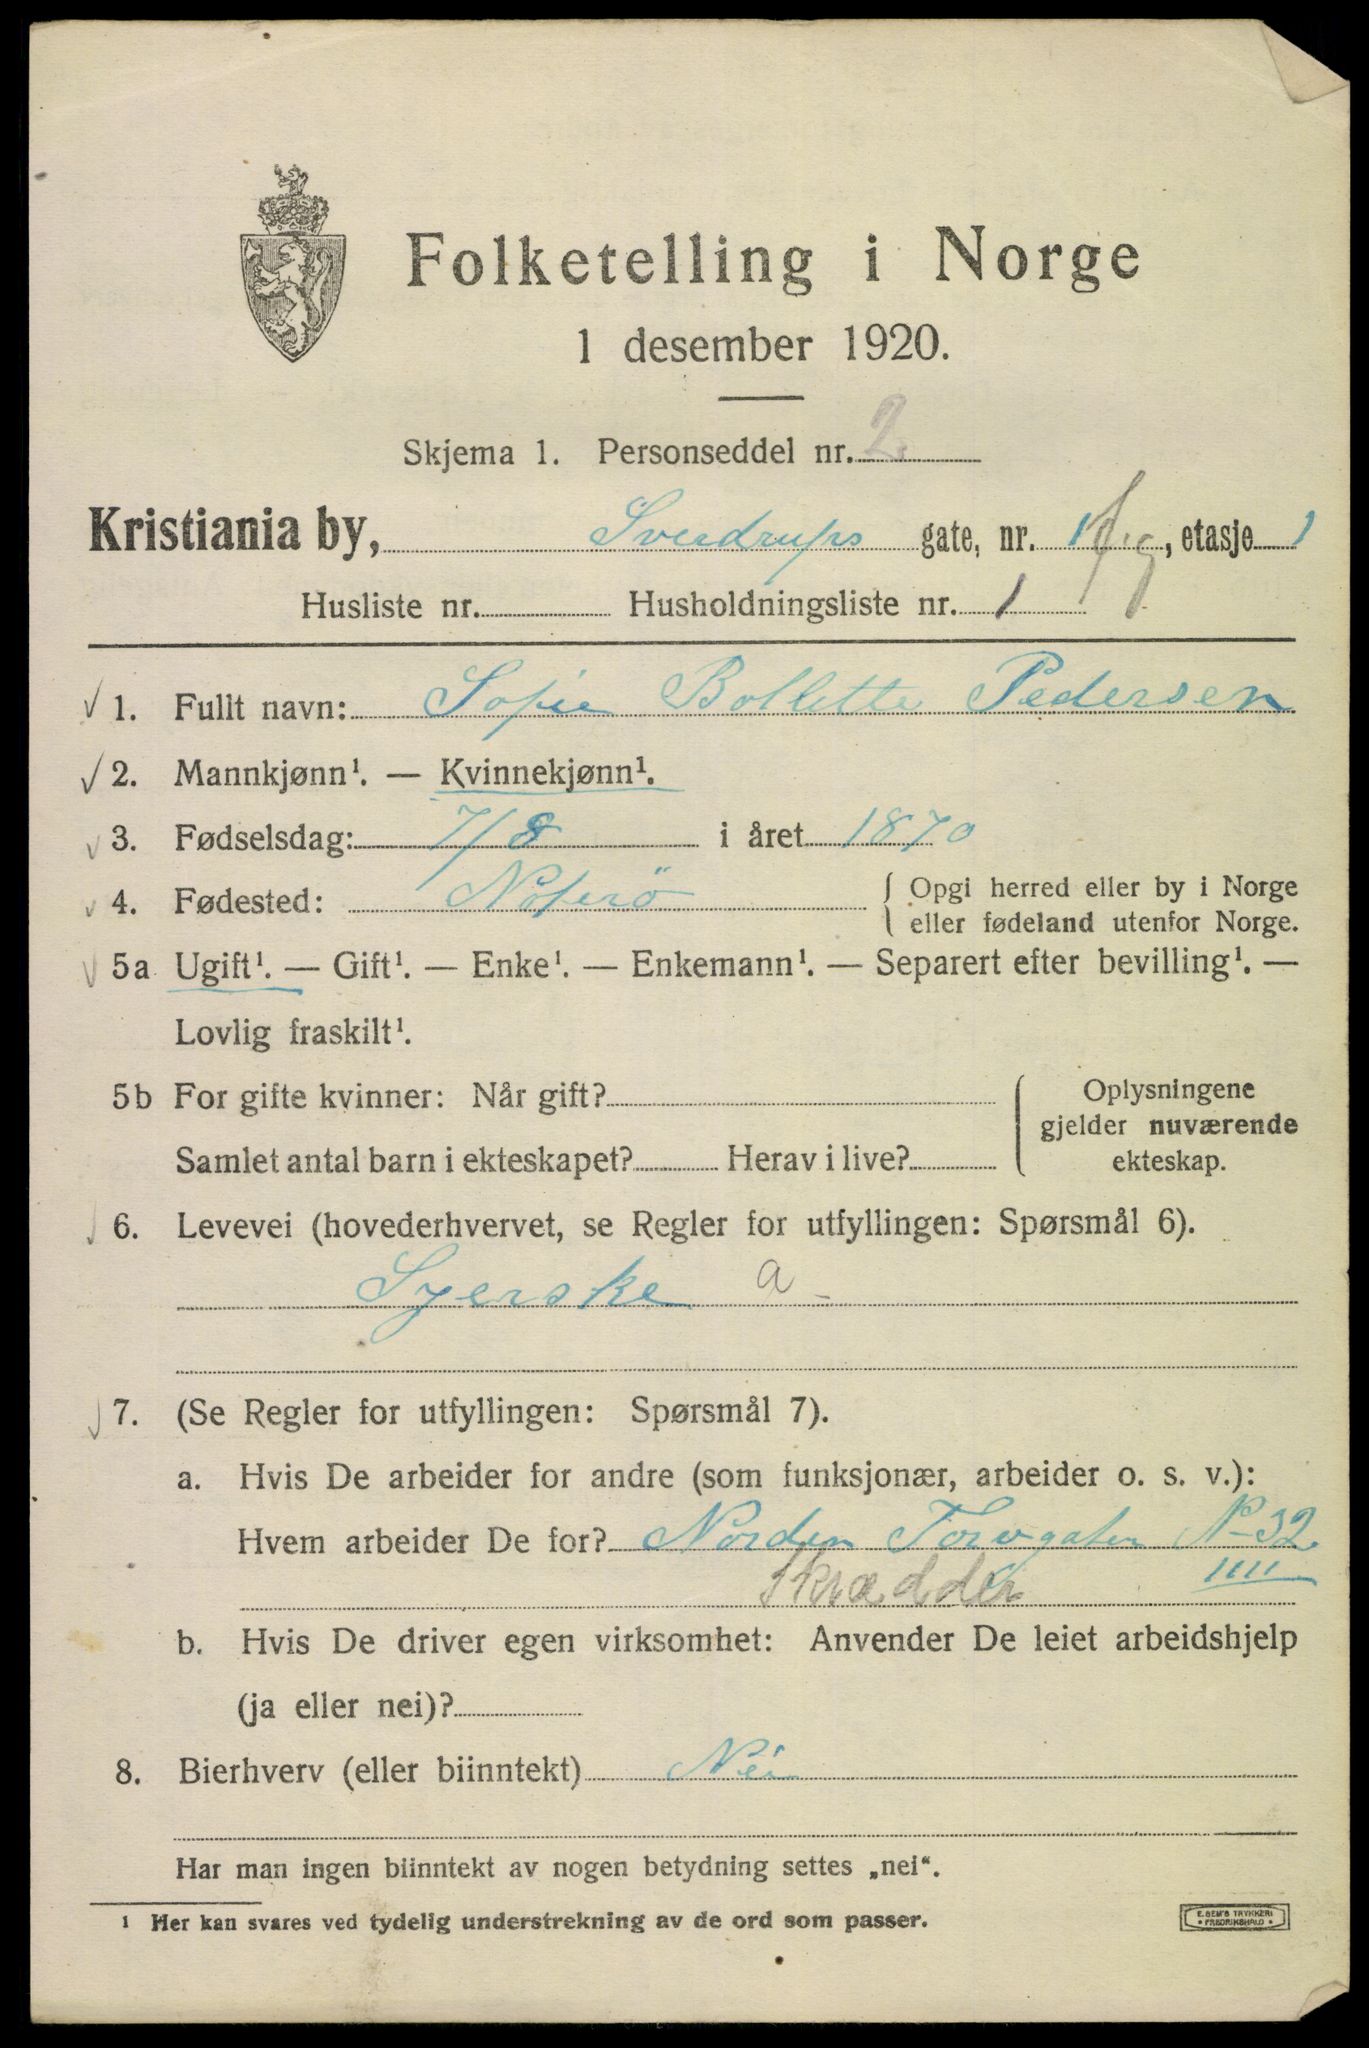 Folketelling i Norge
1 desember 1920.
Skjema 1. Personseddel nr. 2
Kristiania by, Sverdrups gate, nr. 1 fg, etasje 1
Husliste nr. Husholdningsliste nr. 1
1. Fullt navn: Sofie Bollette Pedersen
2. Mannkjønn¹. — Kvinnekjønn¹.
3. Fødselsdag: 7/8 i året 1870
4. Fødested: Nøterö { Opgi herred eller by i Norge
eller fødeland utenfor Norge.
5a Ugift¹. — Gift¹. — Enke¹. — Enkemann¹. — Separert efter bevilling¹. —
Lovlig fraskilt¹.
5b For gifte kvinner: Når gift?
Samlet antal barn i ekteskapet? Herav i live?
{ Oplysningene
gjelder nuværende
ekteskap.
6. Levevei (hovederhvervet, se Regler for utfyllingen: Spørsmål 6).
Syerske a
7. (Se Regler for utfyllingen: Spørsmål 7).
a. Hvis De arbeider for andre (som funksjonær, arbeider o. s. v.):
Hvem arbeider De for? Norden Torvgaten N-32
Skrædder
b. Hvis De driver egen virksomhet: Anvender De leiet arbeidshjelp
(ja eller nei)?
8. Bierhverv (eller biinntekt) Nei
Har man ingen biinntekt av nogen betydning settes „nei“.
¹ Her kan svares ved tydelig understrekning av de ord som passer.
E. SEM'S TRYKKERI
• FREDRIKSHALD •